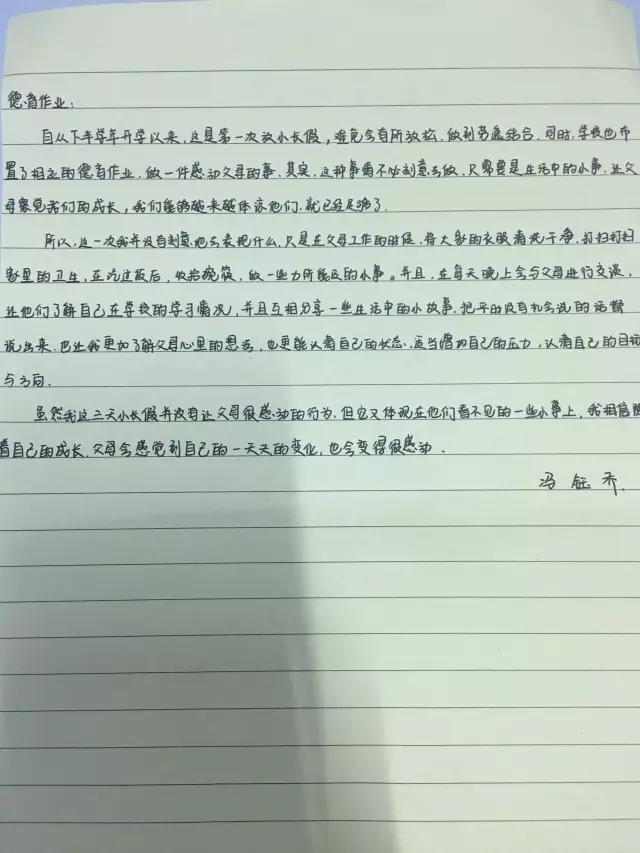 德育作业:
自从下半学年开学以来,这是第一次放小长假,难免会有所放松,做到劳逸结合,同时,学校也布
置了相应的德育作业,做一件感动父母的事,其实,这种事情不必刻意去做,只需要是生活中的小事,让父
母察觉我们的成长,我们能够越来越体谅他们,就已经足够了.
所以,这一次我并没有刻意地去表现什么,只是在父母工作的时候,将大家的衣服清洗干净,打扫打扫
家里的卫生,在吃过饭后,收拾碗筷,做一些力所能及的小事。并且,在每天晚上会与父母进行交谈,
让他们了解自己在学校的学习情况,并且互相分享一些生活中的小故事,把平时没有机会说的话都
说出来,也让我更加了解父母心里的想法,也更能认清自己的状态,适当增加自己的压力,认清自己的目标
与方向.
虽然我这三天小长假并没有让父母很感动的行为,但它又体现在他们看不见的一些小事上,我相信随
着自己的成长,父母会感觉到自己的一天天的变化,也会变得很感动.
冯钰乔